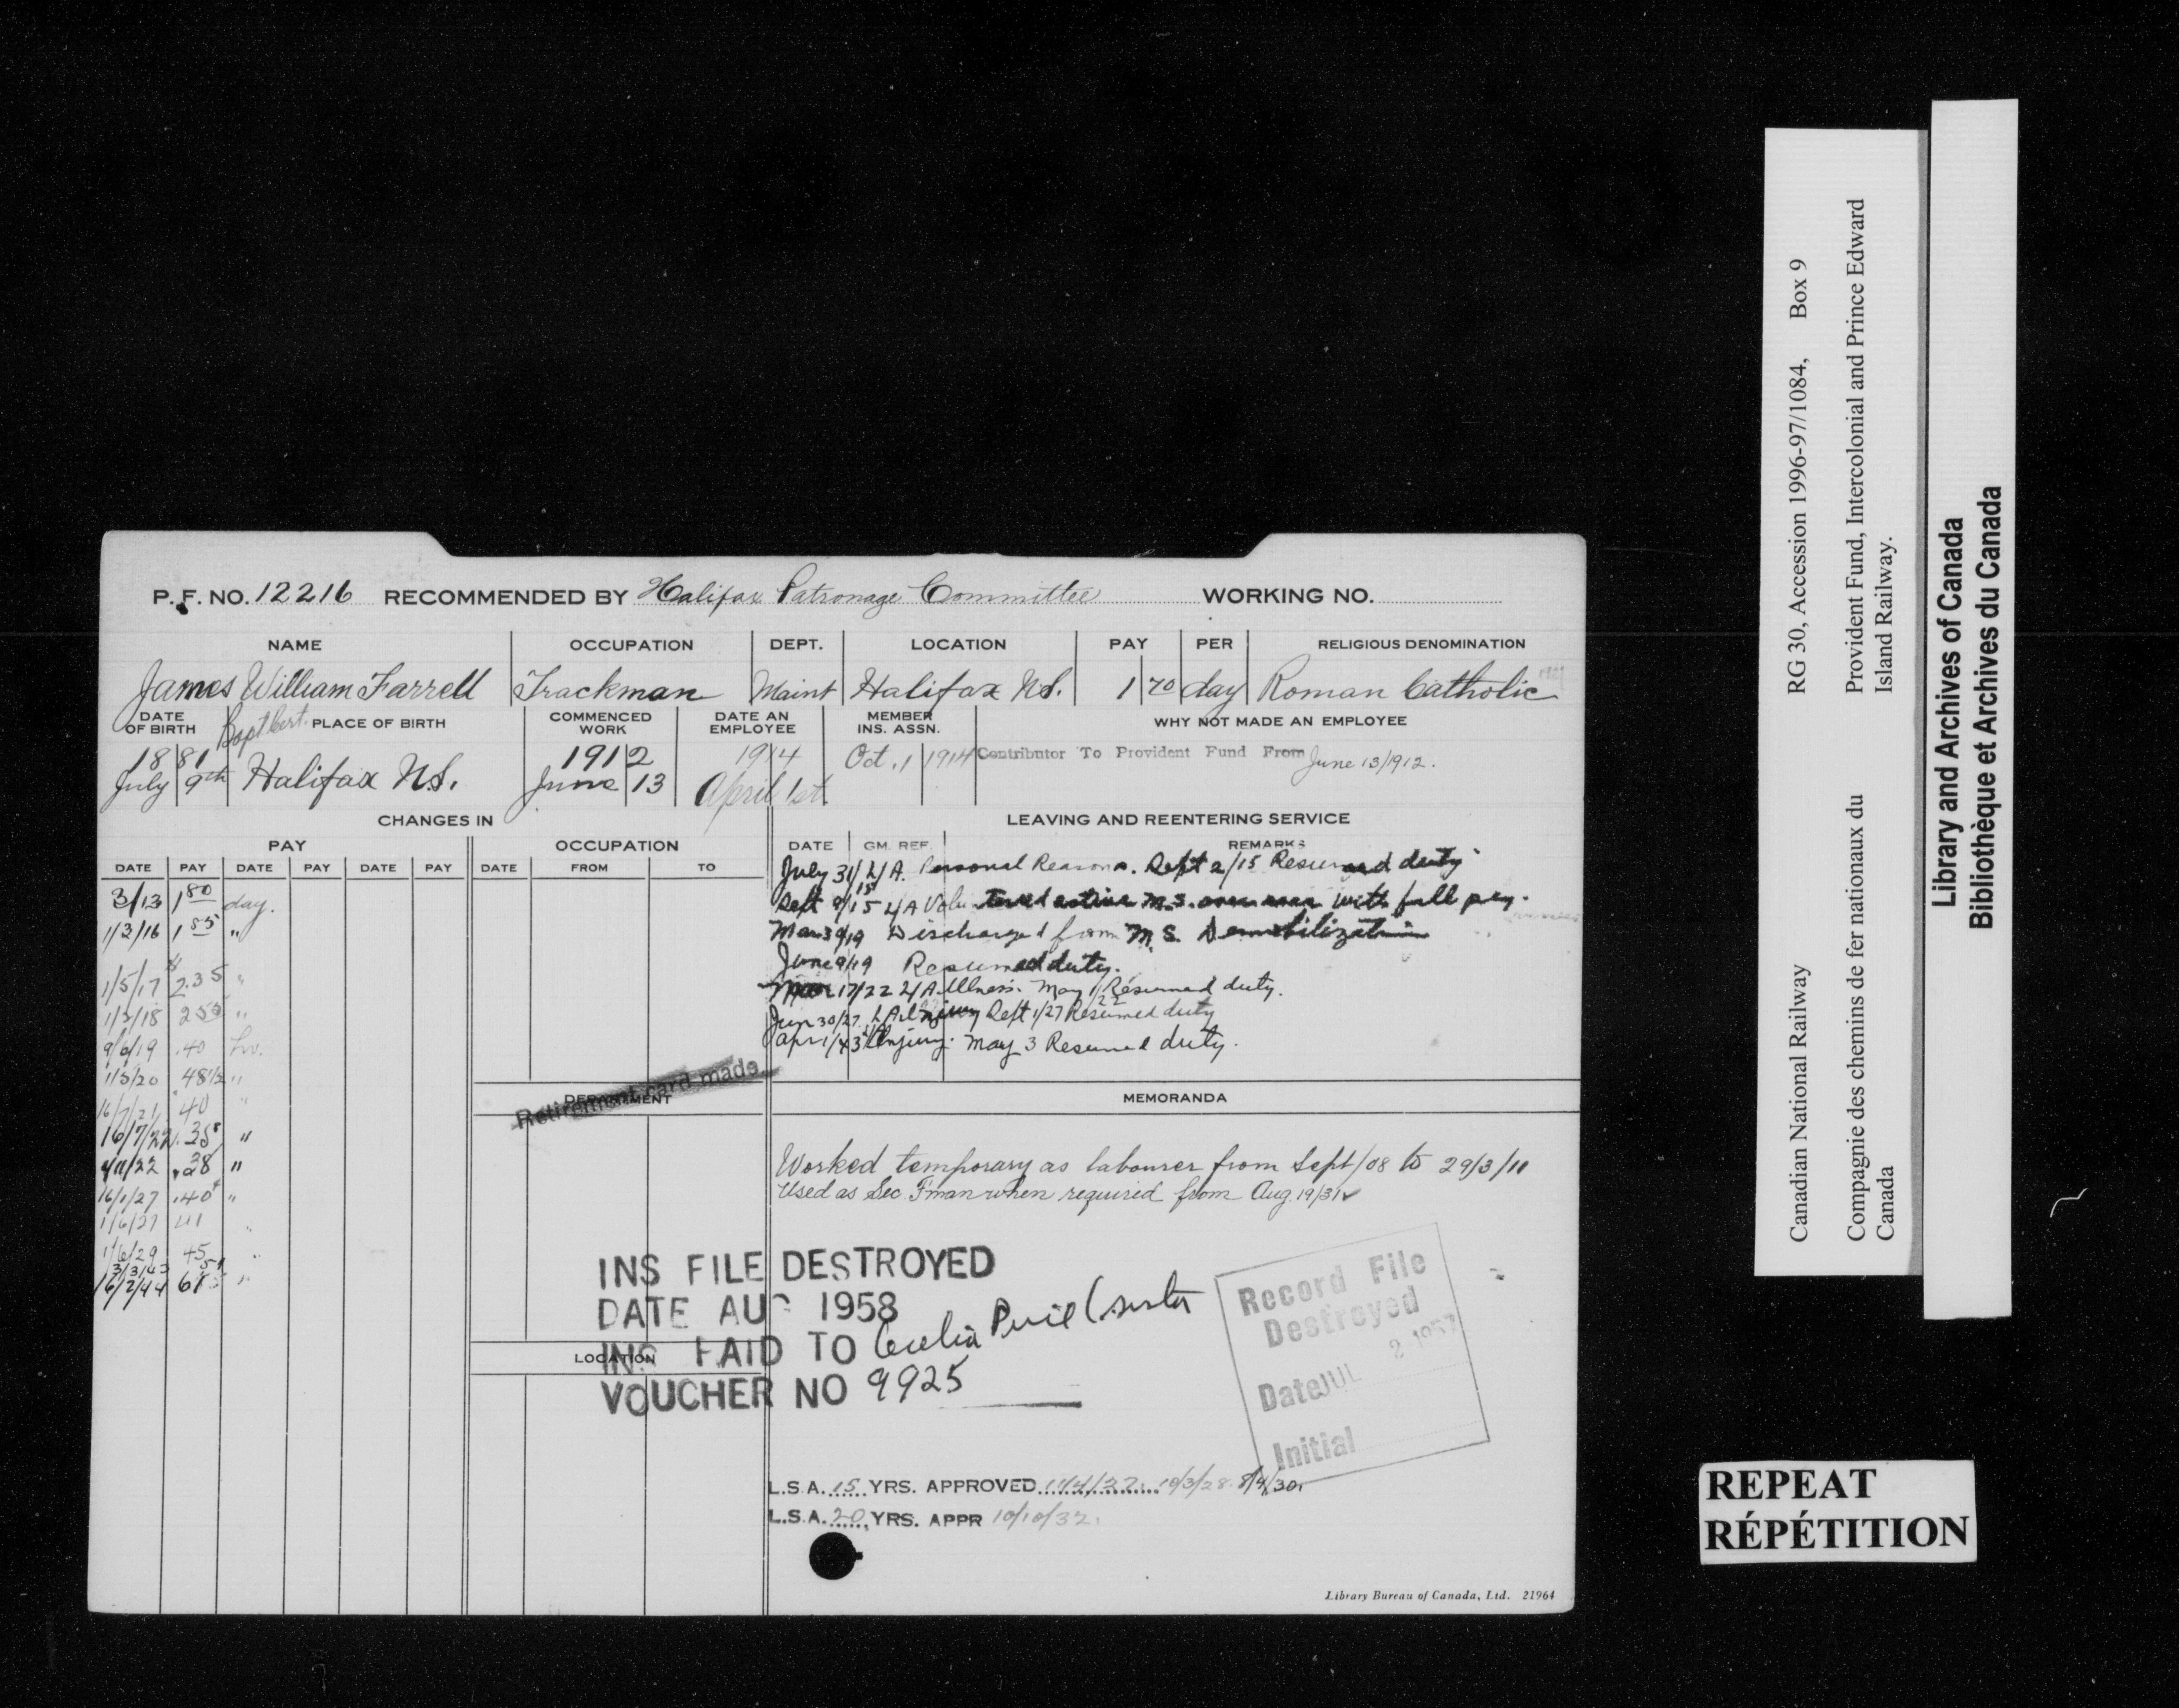 P.F. NO. 12216 RECOMMENDED BY Halifax Patronage Committee WORKING NO.
NAME OCCUPATION DEPT. LOCATION PAY PER RELIGIOUS DENOMINATION
James William Farrell Trackman Maint Halifax N.S. 1 70 day Roman Catholic
DATE OF BIRTH Bapt Cert. PLACE OF BIRTH COMMENCED WORK DATE AN EMPLOYEE MEMBER INS. ASSN. WHY NOT MADE AN EMPLOYEE
1881 1912 1914 Oct. 1 1914 Contributor To Provident Fund From June 13/1912.
July 9th Halifax N.S. June 13 April 1st
CHANGES IN LEAVING AND REENTERING SERVICE
PAY OCCUPATION DATE GM. REF. REMARKS
DATE PAY DATE PAY DATE PAY DATE FROM TO
July 31/15 L/A. Personal Reasons. Sept 2/15 Resumed duty
Sept 9/15 L/A Volunteered active M.S. with full pay.
Mar 30/19 Discharged from M.S. Demobilization
June 9/19 Resumed duty.
17/22 L/A Illness. May 1/22 Resumed duty.
Jun 30/27 L/A Injury Sept 1/27 Resumed duty
Apr 1/43 Injury. May 3 Resumed duty.
3/13 1 80 day.
1/3/16 1 85 "
1/5/17 2.35 "
1/5/18 2 55 "
9/6/19 .40 hr.
1/5/20 48 1/2 "
16/7/21 40 "
16/7/22 .35 "
.28 "
16/1/27 .40 "
1/6/27 41 "
1/6/29 45 "
3/3/43 51
16/2/44 61 "
Retirement card made
DEPARTMENT MEMORANDA
Worked temporary as labourer from Sept/08 to 29/3/11
Used as Sec F'man when required from Aug. 19/31
INS FILE DESTROYED
DATE AUG 1958
INS PAID TO Cecelia (sister
LOCATION
VOUCHER NO 9925
Record File
Destroyed
Date JUL 2 1957
Initial
L.S.A. 15 YRS. APPROVED 11/4/27. 10/3/28. 8/4/30.
L.S.A. 20 YRS. APPR 10/10/32.
Library Bureau of Canada, Ltd. 21964
RG 30, Accession 1996-97/1084, Box 9
Canadian National Railway
Provident Fund, Intercolonial and Prince Edward
Island Railway.
Compagnie des chemins de fer nationaux du
Canada
Library and Archives of Canada
Bibliothèque et Archives du Canada
REPEAT
RÉPÉTITION